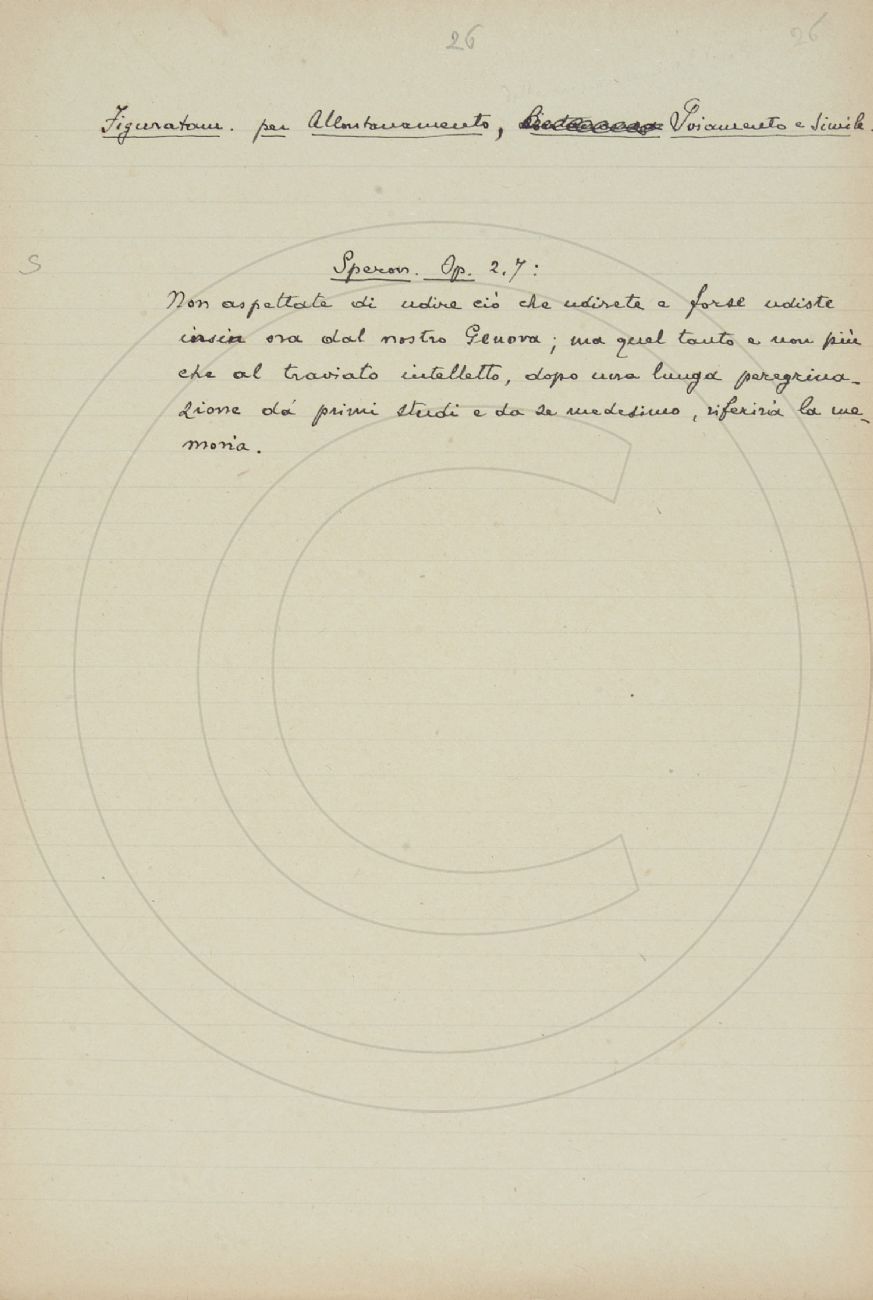 26 26
Figuratam. per Allontanamento, e simile.
S
Speron. Op. 2.7:
Non aspettate di udire ciò che udirete e forse udiste
insin ora dal nostro Genova; ma quel tanto e non più
che al traviato intelletto, dopo una lunga peregrina-
zione dá primi studi e da se medesimo, riferirà la me-
moria.